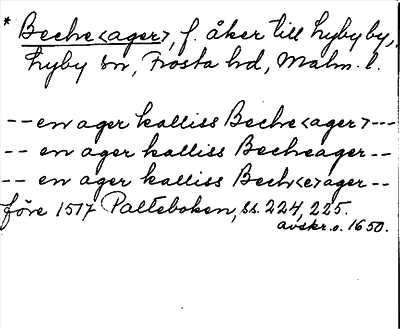 * Beche<ager>, f. åker till Hyby by,
Hyby sn, Frosta hd, Malm. l.
-- en ager kalliss Beche<ager> ---
-- en ager kalliss Becheager --
-- en ager kalliss Bech<e>ager --
före 1517 Palteboken, ss. 224, 225.
avskr. o. 1650.